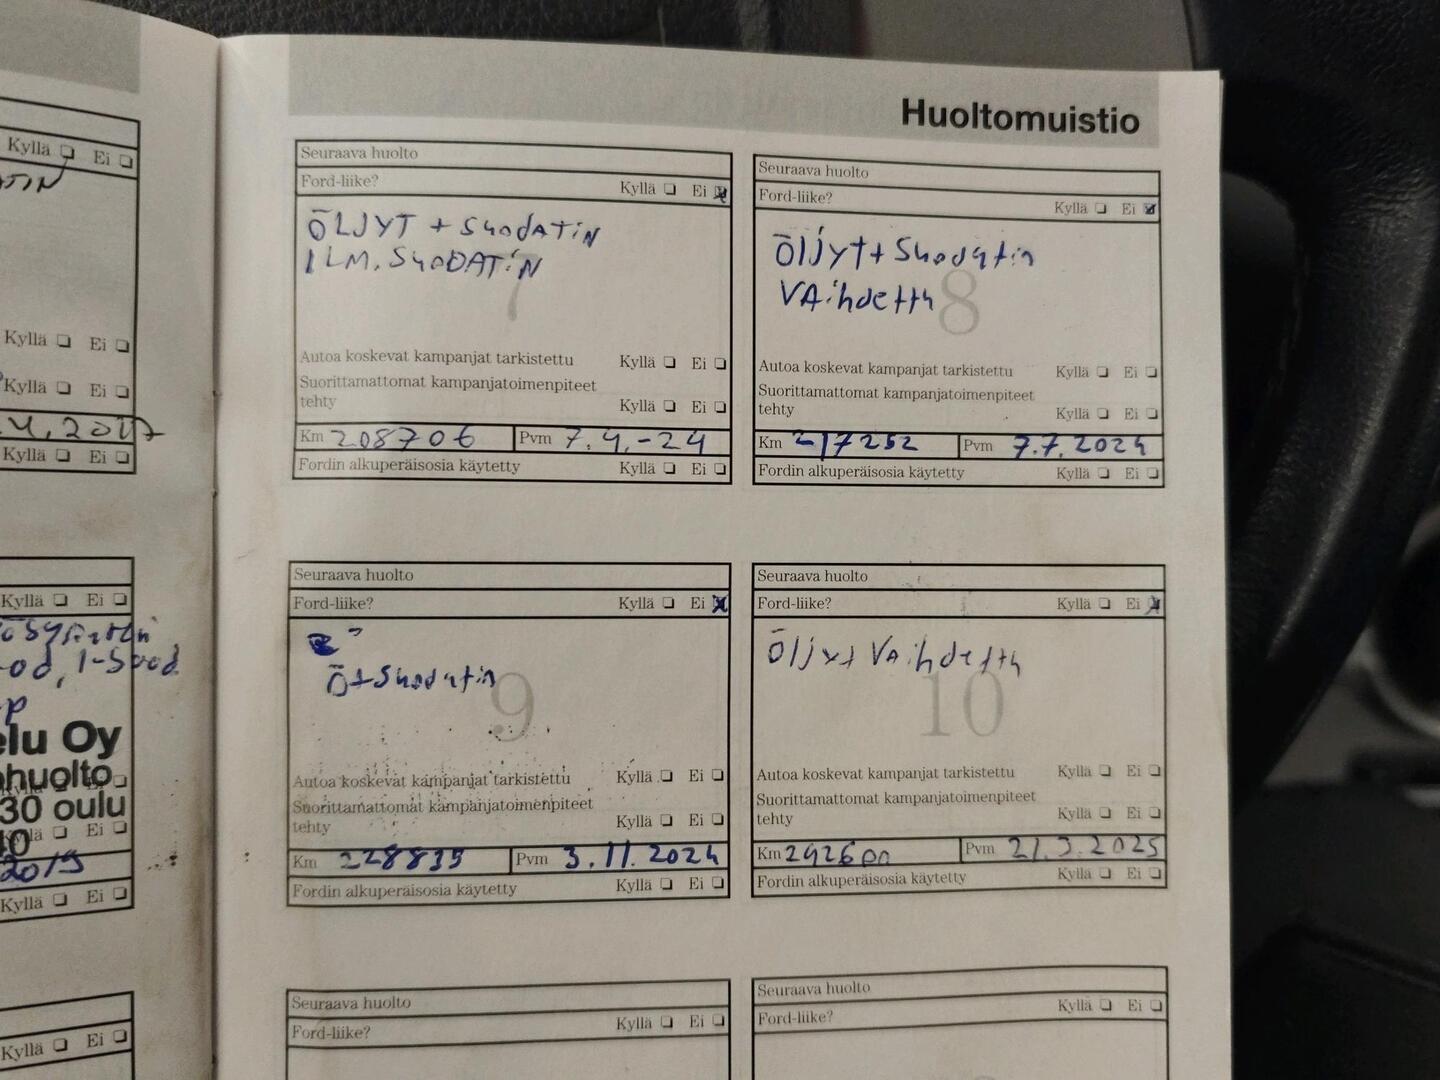 Kyllä Ei
Kyllä Ei
Kyllä Ei
.4.2017
Kyllä Ei
Kyllä Ei
elu Oy
huolto
30 oulu
Kyllä Ei
2019
Kyllä Ei
Kyllä Ei
Huoltomuistio
Seuraava huolto
Ford-liike? Kyllä Ei
ÖLJYT + SuodATiN
ILM. SuoDATiN
7
Autoa koskevat kampanjat tarkistettu Kyllä Ei
Suorittamattomat kampanjatoimenpiteet
tehty Kyllä Ei
Km 208706 Pvm 7.4.-24
Fordin alkuperäisosia käytetty Kyllä Ei
Seuraava huolto
Ford-liike? Kyllä Ei
Öljyt + Suodatin
VAihdettu
8
Autoa koskevat kampanjat tarkistettu Kyllä Ei
Suorittamattomat kampanjatoimenpiteet
tehty Kyllä Ei
Km 217252 Pvm 7.7.2024
Fordin alkuperäisosia käytetty Kyllä Ei
Seuraava huolto
Ford-liike? Kyllä Ei
Ö+Suodatin
9
Autoa koskevat kampanjat tarkistettu Kyllä Ei
Suorittamattomat kampanjatoimenpiteet
tehty Kyllä Ei
Km 228839 Pvm 3.11.2024
Fordin alkuperäisosia käytetty Kyllä Ei
Seuraava huolto
Ford-liike? Kyllä Ei
Öljyt VAihdettu
10
Autoa koskevat kampanjat tarkistettu Kyllä Ei
Suorittamattomat kampanjatoimenpiteet
tehty Kyllä Ei
Km 242600 Pvm 21.3.2025
Fordin alkuperäisosia käytetty Kyllä Ei
Seuraava huolto
Ford-liike? Kyllä Ei
Seuraava huolto
Ford-liike? Kyllä Ei